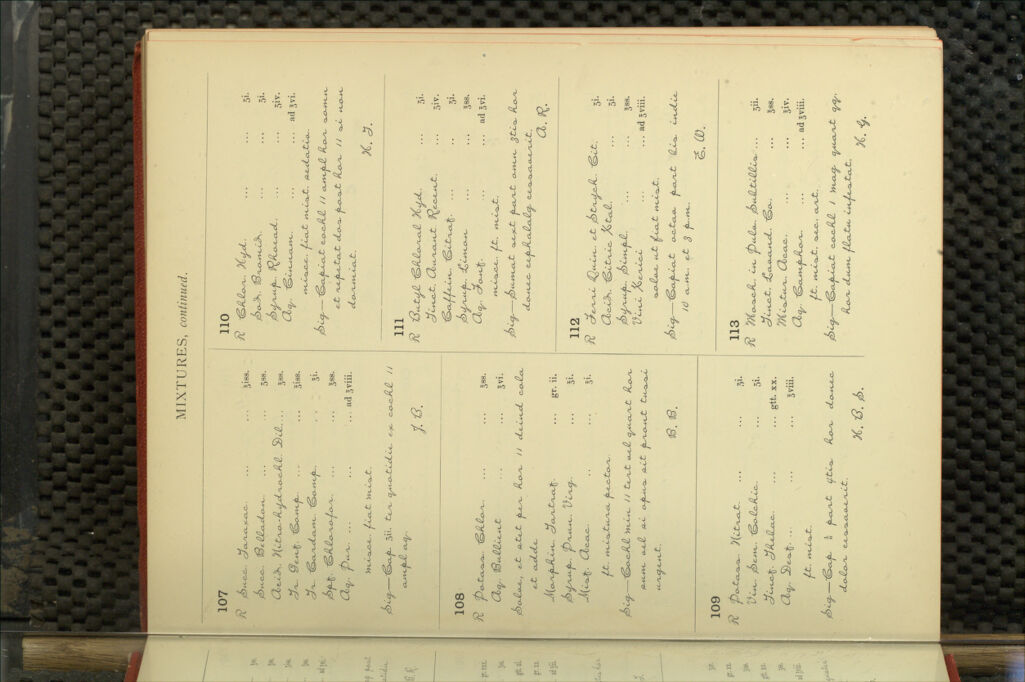 MIXTURES, continued.
107
R Succ. Taraxac. ... ... ʒiss.
Succ. Belladon. ... ... ʒss.
Acid. Nitro-hydrochl. Dil. ... ʒss.
Tr Gent. Comp. ... ... ʒiss.
Tr Cardam Comp. ... ʒi.
Spt. Chlorofor. ... ... ʒss.
Aq. Pur. ... ... ... ad ʒviii.
misce fiat mist.
Sig—Cap ʒii. ter quotidie ex cochl 11
ampl aq.
J. B.
108
R Potass Chlor. ... ... ʒss.
Aq. Bullient ... ... ʒvi.
Solve, et stet per hor 11 deind cola
et adde
Morphin Tartrat. ... gr. ii.
Syrup. Prun. Virg. ... ʒi.
Mist. Acac. ... ... ʒi.
ft. mistura pector.
Sig—Cochl min 11 tert vel quart hor
sum vel si opus sit pront tussi
urgent.
B. B.
109
R Potass Nitrat. ... ... ʒi.
Vin. Sem. Colchic. ... ʒi.
Tinct. Thebac. ... ... gtt. xx.
Aq. Dest. ... ... ... ʒviii.
ft. mist.
Sig—Cap ¼ part qtis hor donec
dolor cessaverit.
H. B. S.
110
R Chlor. Hyd. ... ... ʒi.
Sod. Bromid. ... ... ʒi.
Syrup Rhoead. ... ... ʒiv.
Aq. Cinnam. ... ... ad ʒvi.
misce. fiat mist. sedativ.
Sig—Capiat cochl 11 ampl hor somn
et repetat dos post hor 11 si non
dormiat.
H. J.
111
R Butyl Chloral Hyd. ... ʒi.
Tinct. Aurant Recent. ... ʒiv.
Caffein. Citrat. ... ... ʒi.
Syrup. Limon ... ... ʒss.
Aq. Font. ... ... ad ʒvi.
misce. ft. mist.
Sig—Sumat sext part omn 3tis hor
donec cephalalg cessaverit.
A. R.
112
R Ferri Quin. et Strych Cit. ʒi.
Acid. Citric Xtal. ... ʒi.
Syrup. Simpl. ... ... ʒss.
Vini Xerici ... ... ad ʒviii.
solve ut fiat mist.
Sig—Capiat octav part bis indie
10 a.m. et 3 p.m.
E. W.
113
R Mosch. in Pulv. Subtiliss ... ʒii.
Tinct. Lavand. Co. ... ʒss.
Mistur Acac. ... ... ʒiv.
Aq Camphor. ... ... ad ʒviii.
ft. mist. sec. art.
Sig—Capiat cochl 1 mag quart qq.
hor dum flatu infestat.
H. G.